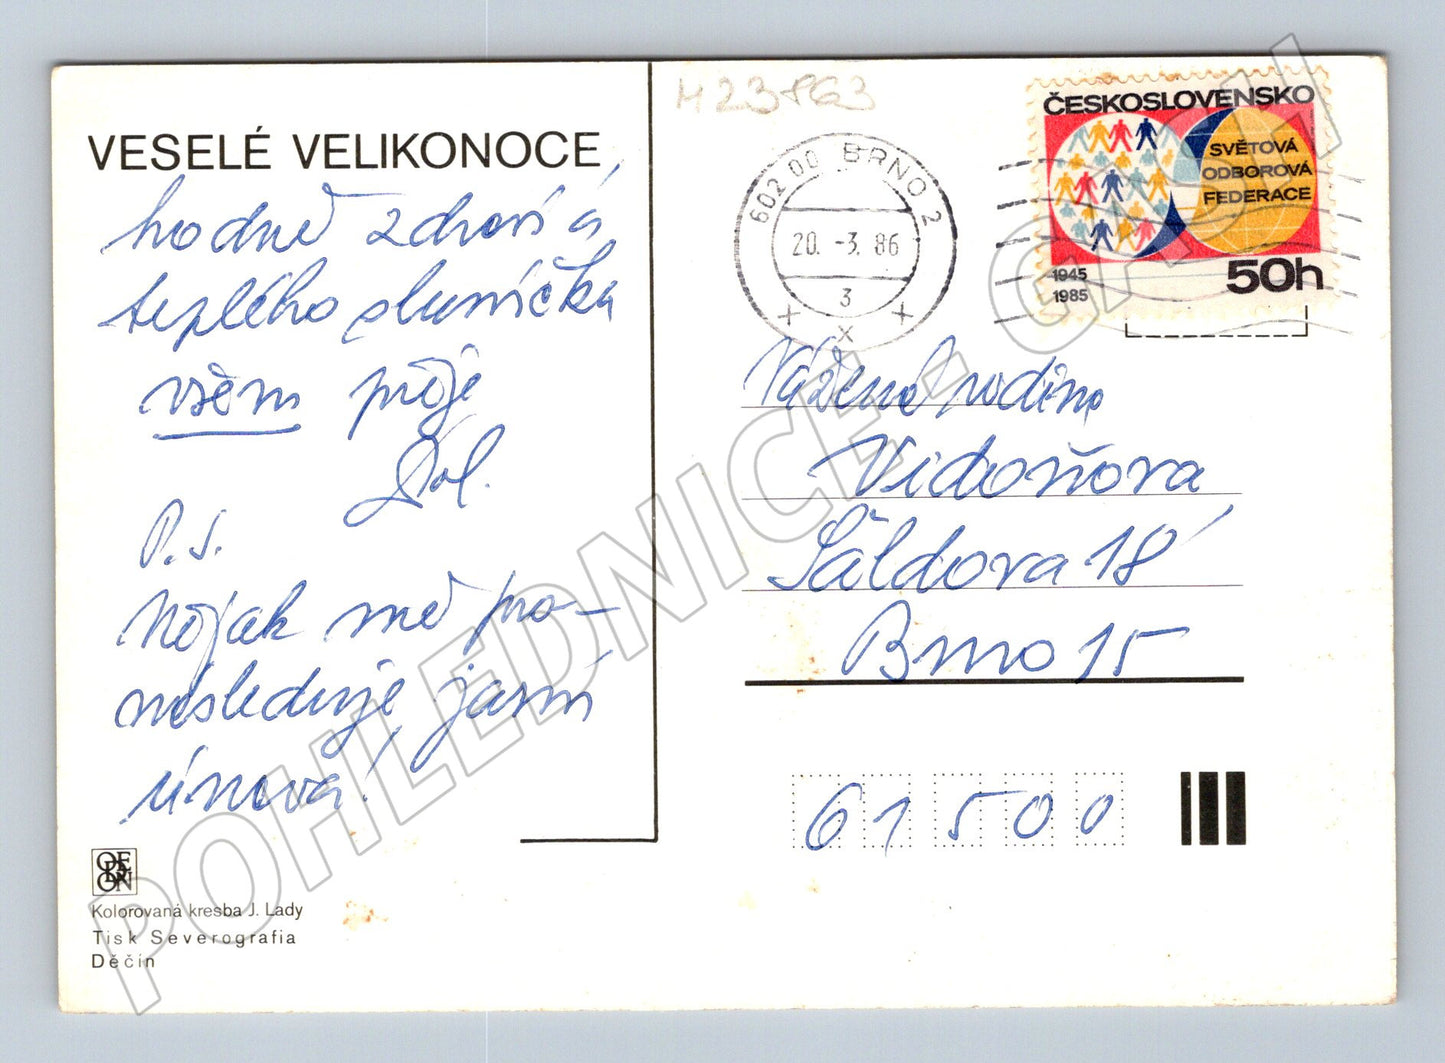 M23863
VESELÉ VELIKONOCE
hodně zdraví a
teplého sluníčka
všem přeje
P.S.
Nějak mě pro-
následuje jarní
únava!
ODEON
Kolorovaná kresba J. Lady
Tisk Severografia
Děčín
602 00 BRNO 2
20. -3. 86
3
ČESKOSLOVENSKO
SVĚTOVÁ
ODBOROVÁ
FEDERACE
1945
1985
50h
Vážená rodina
Vidoňova
Šaldova 18
Brno 15
61500
POHLEDNICE - CASH